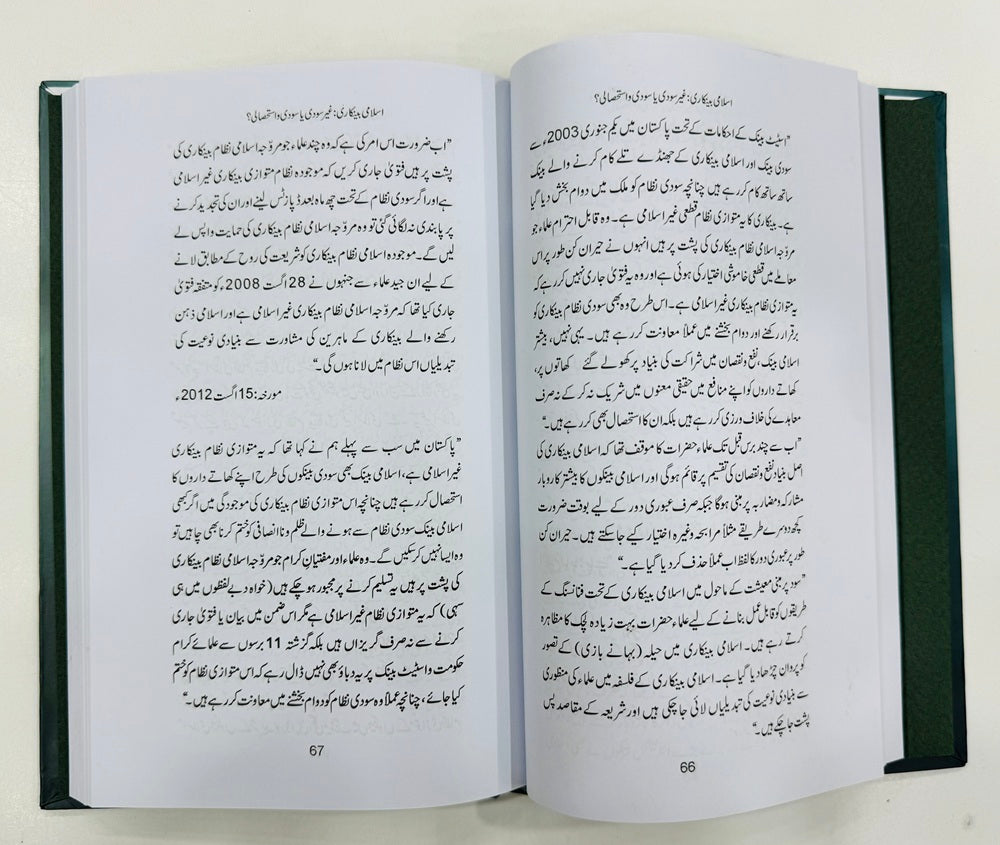 اسلامی بینکاری: غیر سودی یا سودی و استحصالی؟
"اسٹیٹ بینک کے احکامات کے تحت پاکستان میں یکم جنوری 2003ء سے
سودی بینک اور اسلامی بینکاری کے جھنڈے تلے کام کرنے والے بینک
ساتھ ساتھ کام کر رہے ہیں چنانچہ سودی نظام کو ملک میں دوام بخش دیا گیا
ہے۔ بینکاری کا یہ متوازی نظام قطعی غیر اسلامی ہے۔ وہ قابل احترام علماء جو
مروّجہ اسلامی نظام بینکاری کی پشت پر ہیں انہوں نے حیران کن طور پر اس
معاملے میں قطعی خاموشی اختیار کی ہوئی ہے اور وہ یہ فتویٰ جاری نہیں کر رہے کہ
یہ متوازی نظام بینکاری غیر اسلامی ہے۔ اس طرح وہ بھی سودی نظام بینکاری کو
برقرار رکھنے اور دوام بخشنے میں عملاً معاونت کر رہے ہیں۔ یہی نہیں، بیشتر
اسلامی بینک، نفع و نقصان میں شراکت کی بنیاد پر کھولے گئے کھاتوں پر،
کھاتے داروں کو اپنے منافع میں حقیقی معنوں میں شریک نہ کر کے نہ صرف
معاہدے کی خلاف ورزی کر رہے ہیں بلکہ ان کا استحصال بھی کر رہے ہیں۔"
"اب سے چند برس قبل تک علماء حضرات کا موقف تھا کہ اسلامی بینکاری کی
اصل بنیاد نفع و نقصان کی تقسیم پر قائم ہوگی اور اسلامی بینکوں کا بیشتر کاروبار
مشارکہ و مضاربہ پر مبنی ہوگا جبکہ صرف عبوری دور کے لیے بوقت ضرورت
کچھ دوسرے طریقے مثلاً مرابحہ وغیرہ اختیار کیے جاسکتے ہیں۔ حیران کن
طور پر عبوری دور کا لفظ اب عملاً حذف کر دیا گیا ہے۔"
"سود پر مبنی معیشت کے ماحول میں اسلامی بینکاری کے تحت فنانسنگ کے
طریقوں کو قابل عمل بنانے کے لیے علماء حضرات بہت زیادہ لچک کا مظاہرہ
کرتے رہے ہیں۔ اسلامی بینکاری میں حیلہ (بہانے بازی) کے تصور
کو پروان چڑھا دیا گیا ہے۔ اسلامی بینکاری کے فلسفہ میں علماء کی منظوری
سے بنیادی نوعیت کی تبدیلیاں لائی جا چکی ہیں اور شریعہ کے مقاصد پس
پشت جا چکے ہیں۔"
66
اسلامی بینکاری: غیر سودی یا سودی و استحصالی؟
"اب ضرورت اس امر کی ہے کہ وہ چند علماء جو مروّجہ اسلامی نظام بینکاری کی
پشت پر ہیں فتویٰ جاری کریں کہ موجودہ نظام متوازی بینکاری غیر اسلامی
ہے اور اگر سودی نظام کے تحت چھ ماہ بعد ڈپازٹس لینے اور ان کی تجدید کرنے
پر پابندی نہ لگائی گئی تو وہ مروّجہ اسلامی نظام بینکاری کی حمایت واپس لے
لیں گے۔ موجودہ اسلامی نظام بینکاری کو شریعت کی روح کے مطابق لانے
کے لیے ان جید علماء سے جنہوں نے 28 اگست 2008ء کو متفقہ فتویٰ
جاری کیا تھا کہ مروّجہ اسلامی نظام بینکاری غیر اسلامی ہے اور اسلامی ذہن
رکھنے والے بینکاری کے ماہرین کی مشاورت سے بنیادی نوعیت کی
تبدیلیاں اس نظام میں لانا ہوں گی۔"
مورخہ: 15 اگست 2012ء
"پاکستان میں سب سے پہلے ہم نے کہا تھا کہ یہ متوازی نظام بینکاری
غیر اسلامی ہے، اسلامی بینک بھی سودی بینکوں کی طرح اپنے کھاتے داروں کا
استحصال کر رہے ہیں چنانچہ اس متوازی نظام بینکاری کی موجودگی میں اگر کبھی
اسلامی بینک سودی نظام سے ہونے والے ظلم و ناانصافی کو ختم کرنا بھی چاہیں تو
وہ ایسا نہیں کر سکیں گے۔ وہ علماء اور مفتیان کرام جو مروّجہ اسلامی نظام بینکاری
کی پشت پر ہیں یہ تسلیم کرنے پر مجبور ہو چکے ہیں (خواہ دبے لفظوں میں ہی
سہی) کہ یہ متوازی نظام غیر اسلامی ہے مگر اس ضمن میں بیان یا فتویٰ جاری
کرنے سے نہ صرف گریزاں ہیں بلکہ گزشتہ 11 برسوں سے علمائے کرام
حکومت و اسٹیٹ بینک پر یہ دباؤ بھی نہیں ڈال رہے کہ اس متوازی نظام کو ختم
کیا جائے، چنانچہ عملاً وہ سودی نظام کو دوام بخشنے میں معاونت کر رہے ہیں۔"
67